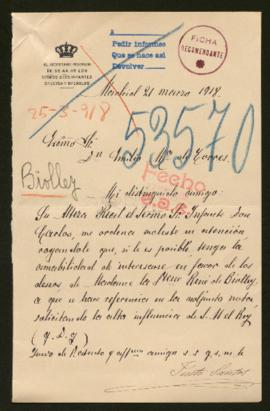 EL SECRETARIO PARTICULAR
DE SS. AA. RR. LOS
SERMOS. SRES. INFANTES
A
Pedir informes
Que se hace así
Devolver
FICHA
RECOMENDANTE
Madrid 21 marzo 1918.
25-3-918
53570
Excmo Sr.
Dn Emilio Mª de Torres.
Biolley
Fecho
Mi distinguido amigo:
Su Alteza Real el Sermo Sr Infante Don
Carlos, me ordena moleste su atención
rogándole que, si le es posible, tenga la
amabilidad de interesarse en favor de los
deseos de Madame la René de Biolley,
a que se hace referencia en la adjunta nota,
solicitando la alta influencia de S. M. el Rey
(q. D. g.)
suyo afffmo amigo s. s. q. s. m. b.